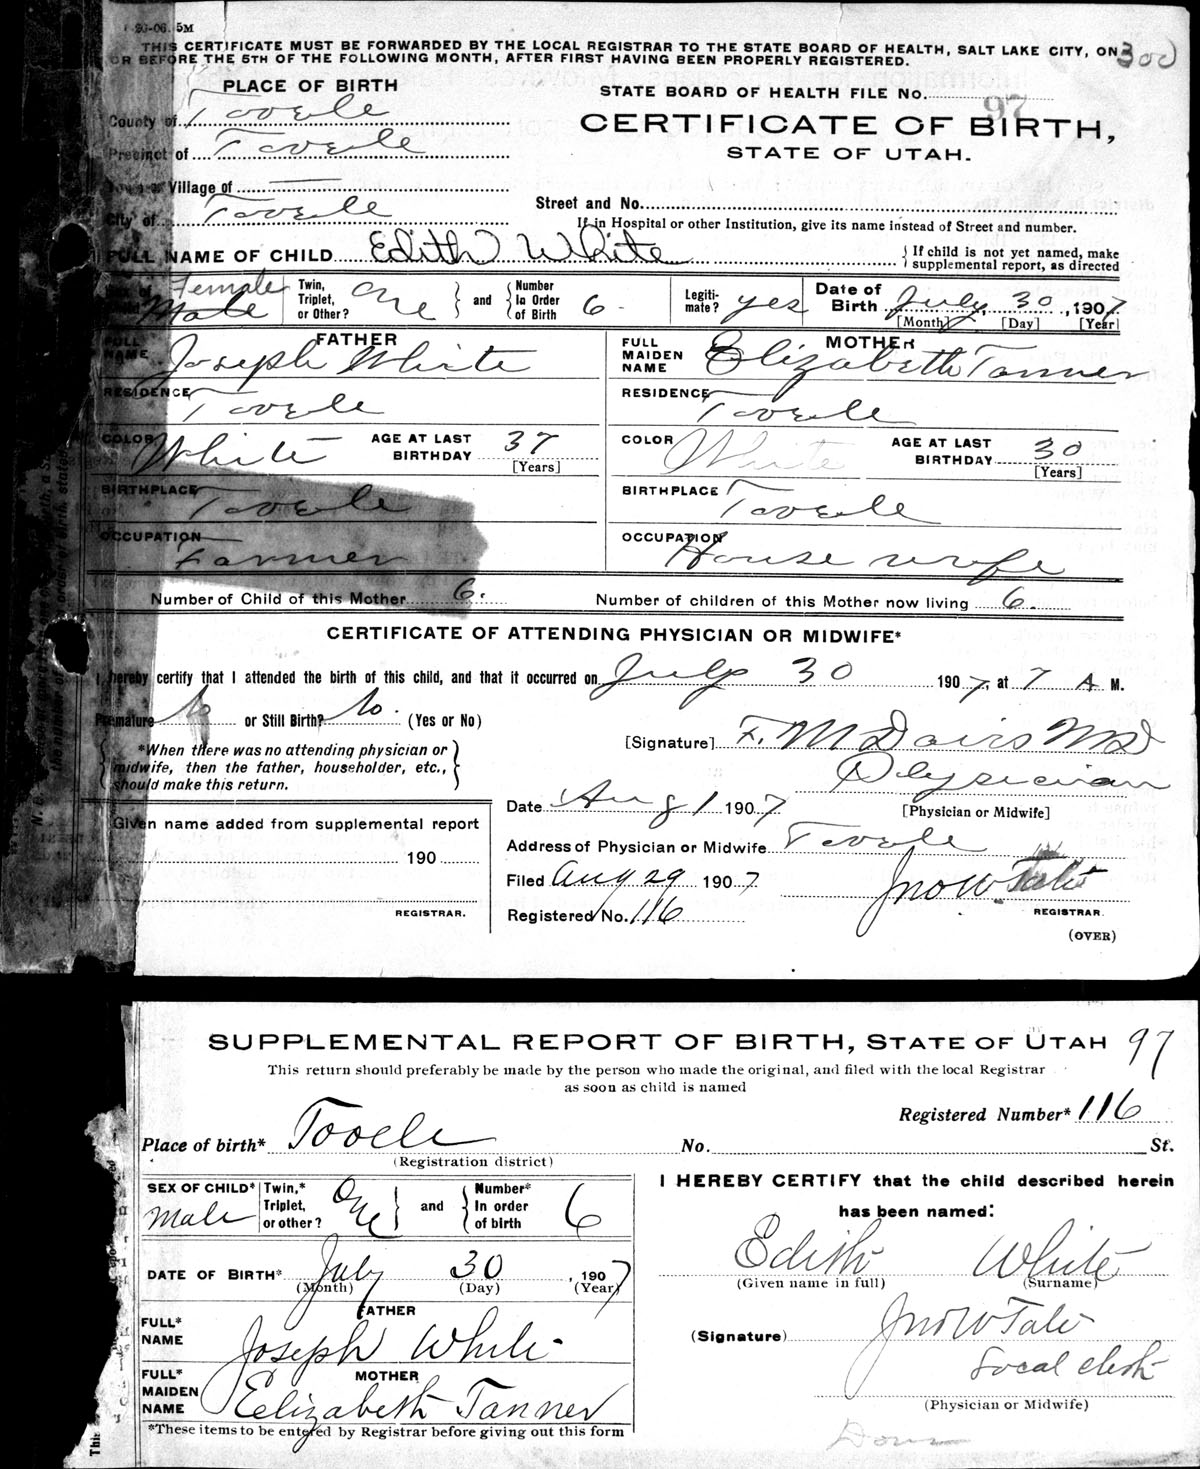 26-06. 5M
THIS CERTIFICATE MUST BE FORWARDED BY THE LOCAL REGISTRAR TO THE STATE BOARD OF HEALTH, SALT LAKE CITY, ON 300
OR BEFORE THE 5TH OF THE FOLLOWING MONTH, AFTER FIRST HAVING BEEN PROPERLY REGISTERED.
PLACE OF BIRTH
STATE BOARD OF HEALTH FILE No. 97
County of Tooele
CERTIFICATE OF BIRTH,
Precinct of Tooele
STATE OF UTAH.
Village of —
Street and No.
City of Tooele
If in Hospital or other Institution, give its name instead of Street and number.
FULL NAME OF CHILD Edith White
If child is not yet named, make
supplemental report, as directed
Female
Male
Twin, Triplet, or Other? One and Number In Order of Birth 6
Legiti-mate? yes
Date of Birth July 30, 1907
[Month] [Day] [Year]
FATHER
FULL NAME Joseph White
MOTHER
FULL MAIDEN NAME Elizabeth Tanner
RESIDENCE Tooele
RESIDENCE Tooele
COLOR White AGE AT LAST BIRTHDAY 37 [Years]
COLOR White AGE AT LAST BIRTHDAY 30 [Years]
BIRTHPLACE Tooele
BIRTHPLACE Tooele
OCCUPATION Farmer
OCCUPATION House wife
Number of Child of this Mother 6. Number of children of this Mother now living 6.
CERTIFICATE OF ATTENDING PHYSICIAN OR MIDWIFE*
I hereby certify that I attended the birth of this child, and that it occurred on July 30 1907, at 7 A M.
Premature No or Still Birth? No. (Yes or No)
[Signature] F. M Davis MD
*When there was no attending physician or
midwife, then the father, householder, etc.,
should make this return.
Physician
[Physician or Midwife]
Date Aug 1 1907
Given name added from supplemental report
190
REGISTRAR.
Address of Physician or Midwife Tooele
Filed Aug 29 1907
Jno W Tate
REGISTRAR.
Registered No. 116
(OVER)
SUPPLEMENTAL REPORT OF BIRTH, STATE OF UTAH 97
This return should preferably be made by the person who made the original, and filed with the local Registrar
as soon as child is named
Registered Number* 116
Place of birth* Tooele No. St.
(Registration district)
SEX OF CHILD* Male
Twin,* Triplet, or other? One and Number* In order of birth 6
DATE OF BIRTH* July 30, 1907
(Month) (Day) (Year)
FATHER
FULL* NAME Joseph White
MOTHER
FULL* MAIDEN NAME Elizabeth Tanner
*These items to be entered by Registrar before giving out this form
I HEREBY CERTIFY that the child described herein
has been named:
Edith White
(Given name in full) (Surname)
(Signature) Jno W Tate
Local clerk
(Physician or Midwife)